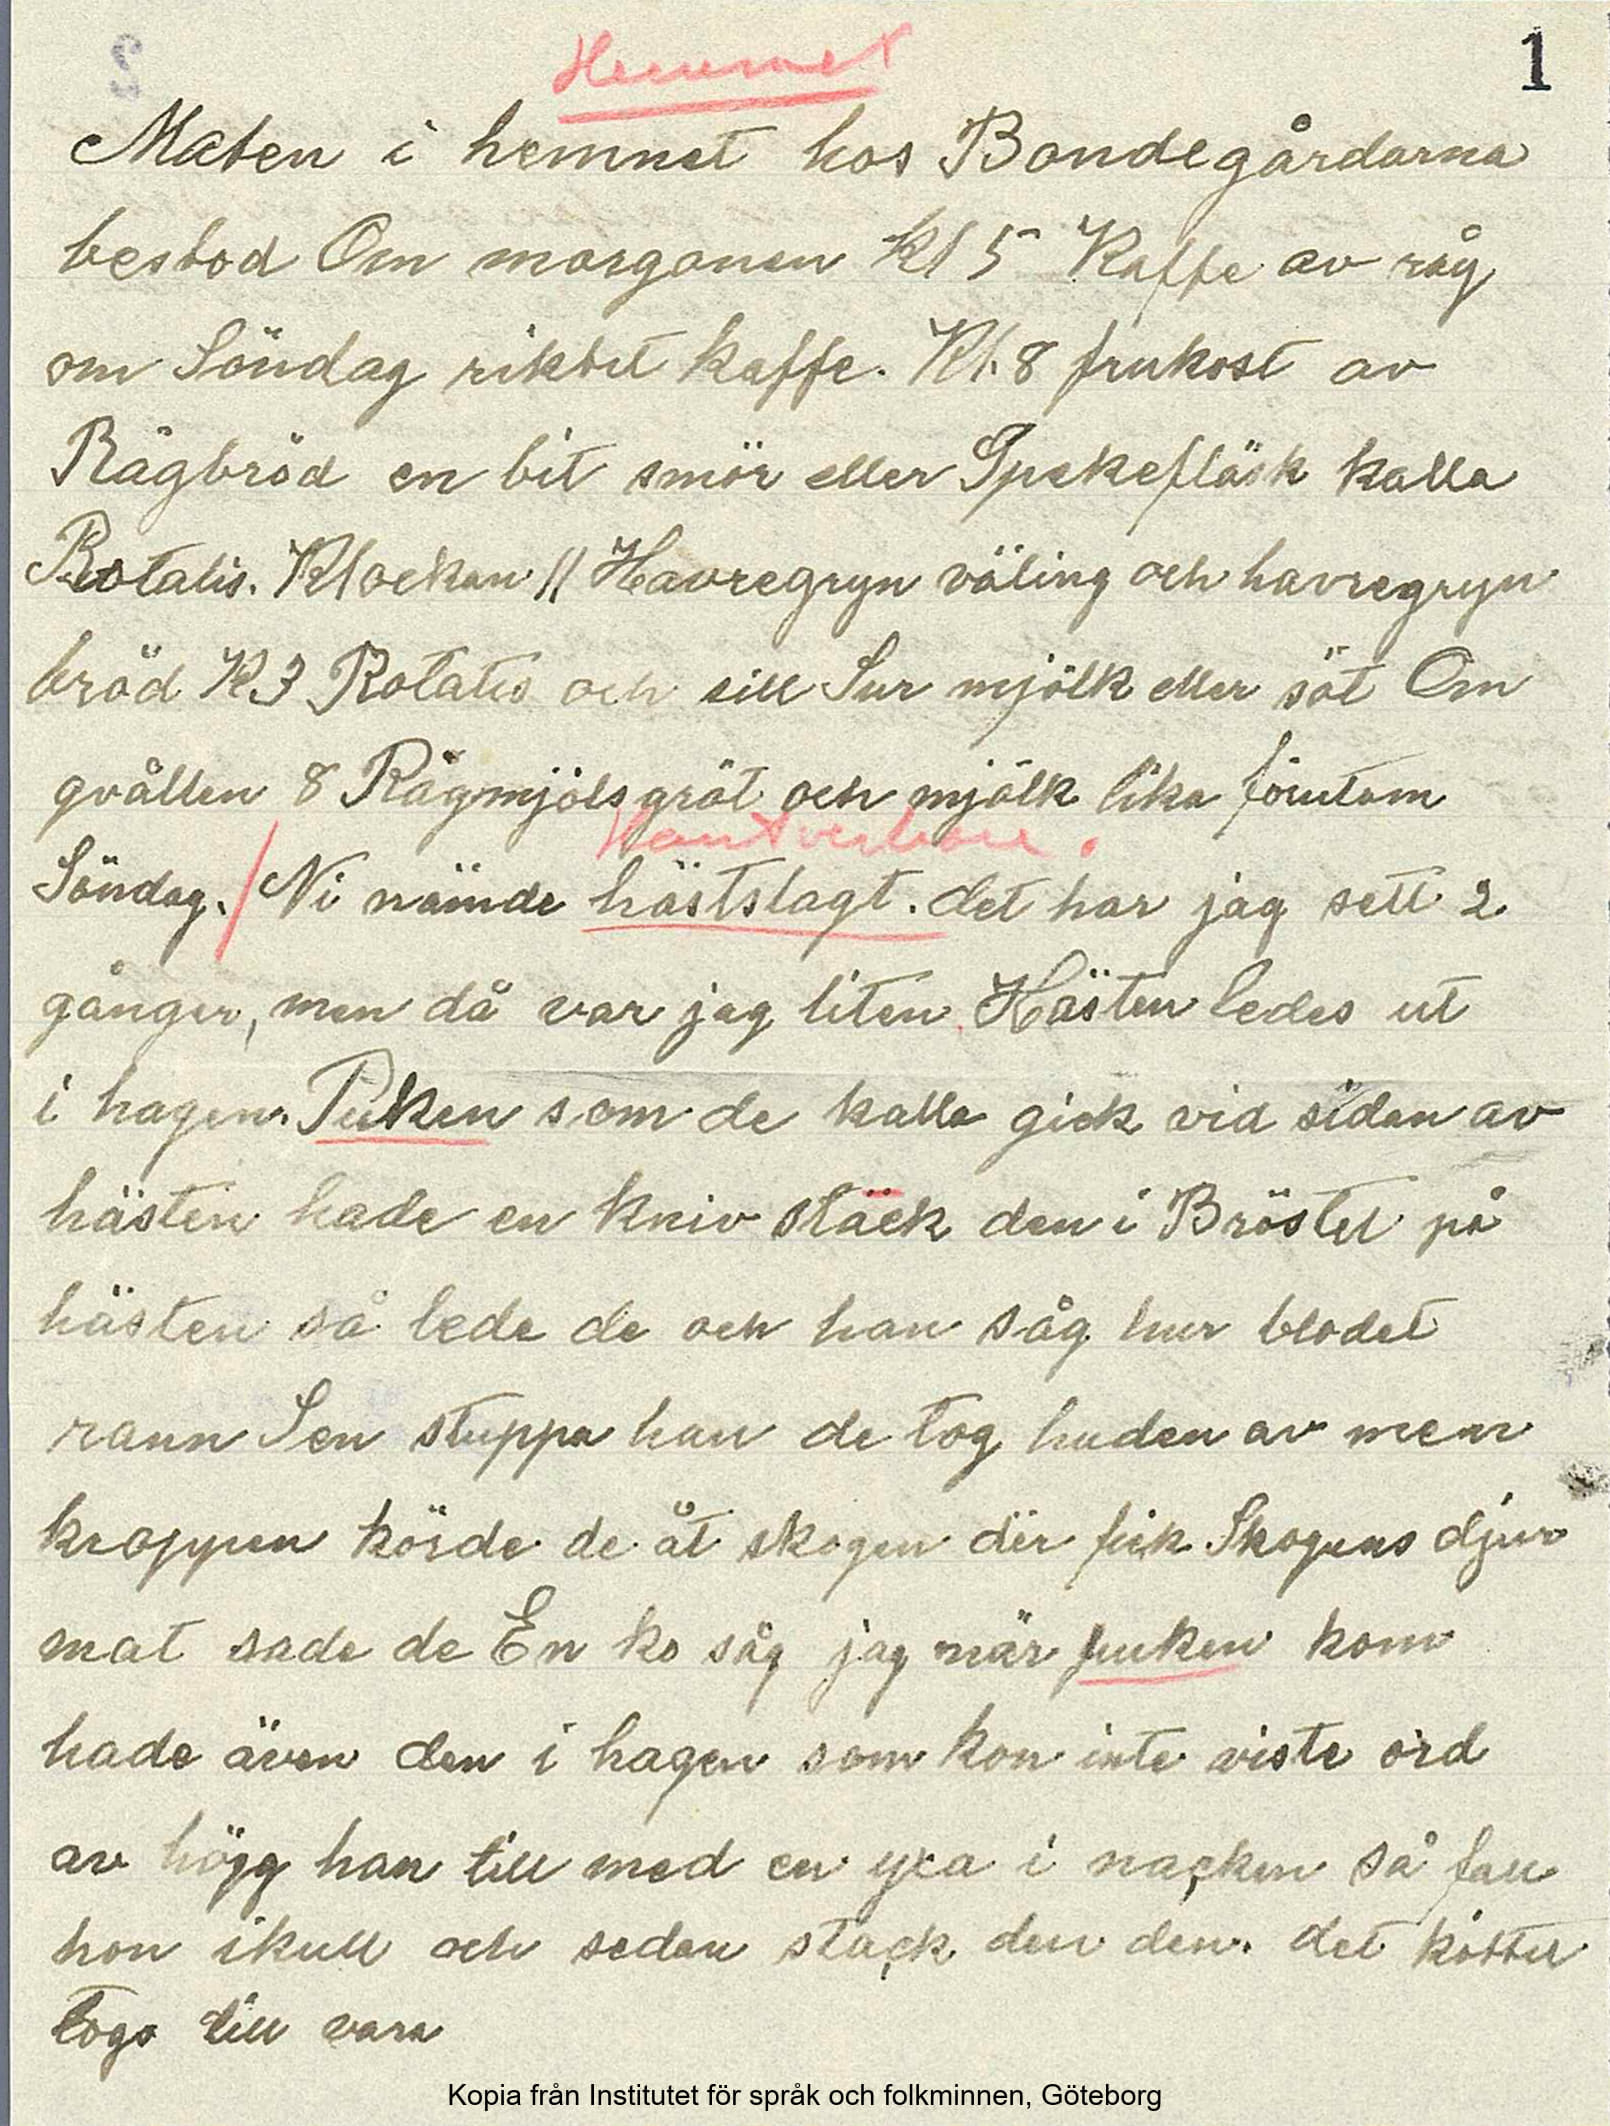 Hemmet
1
Maten i hemmet hos Bondegårdarna
bestod Om morgonen Kl 5 Kaffe av råg
om Söndag riktit kaffe. Kl. 8 frukost av
Rågbröd en bit smör eller Spekefläsk kalla
Potatis. Klockan 11 Havregryn väling och havregryn
bröd K 3 Potatis och sill Sur mjölk eller söt Om
qvällen 8 Rågmjölsgröt och mjölk lika förutom
Hantverkare.
Söndag. / Ni nämde hästslagt. det har jag sett 2
gånger, men då var jag liten. Hästen ledes ut
i hagen. Puken som de kalla gick vid sidan av
hästen hade en kniv stäck den i Bröstet på
hästen så lede de och han såg hur blodet
rann Sen stuppa han de tog huden av men
kroppen körde de åt skogen där fick Skogens djur
mat sade de En ko såg jag när puken kom
hade även den i hagen som kon inte viste ord
av högg han till med en yxa i nacken så fall
hon ikull och sedan stack den den. det köttet
togs till vara
Kopia från Institutet för språk och folkminnen, Göteborg